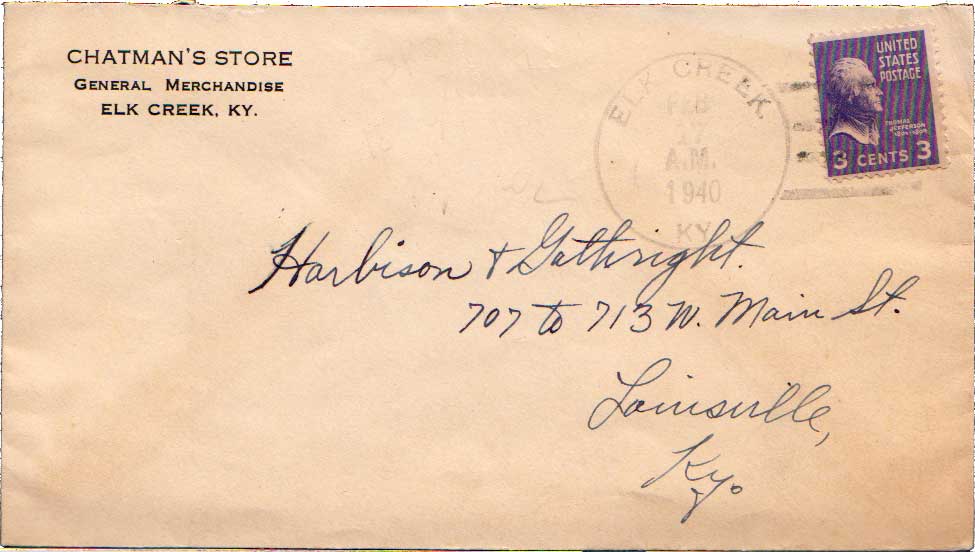 CHATMAN'S STORE
GENERAL MERCHANDISE
ELK CREEK, KY.
ELK CREEK,
FEB
17
A.M.
1940
KY
UNITED
STATES
POSTAGE
THOMAS
JEFFERSON
3 CENTS 3
Harbison & Gathright.
707 to 713 W. Main St.
Louisville,
Ky.